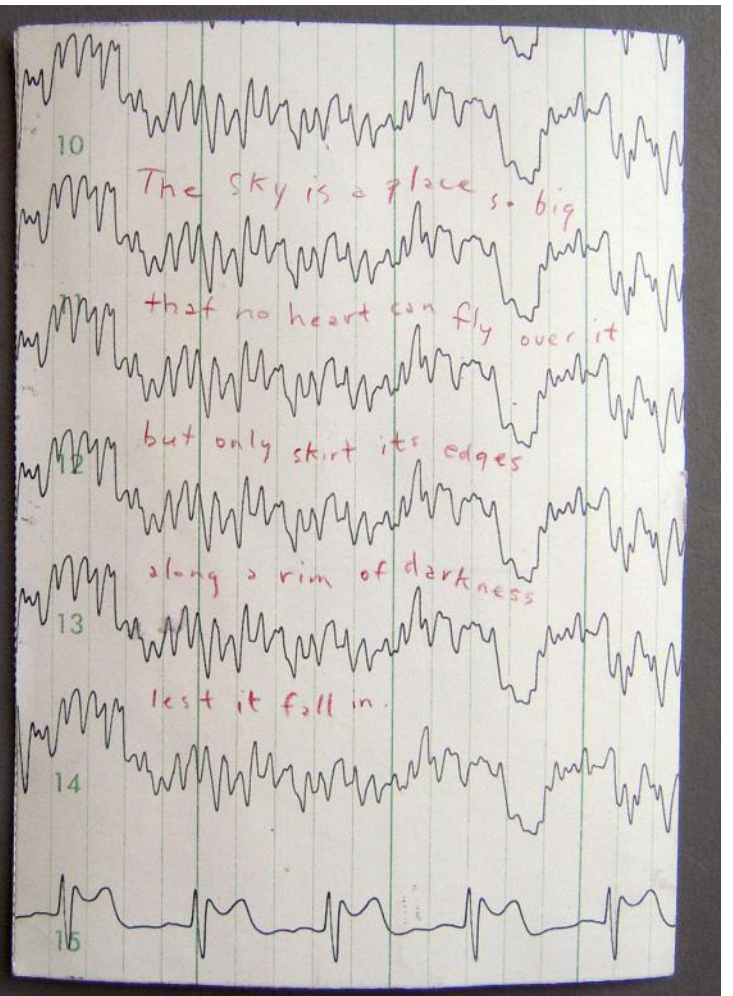 10
The sky is a place so big
11
that no heart can fly over it
12
but only skirt its edges
along a rim of darkness
13
lest it fall in.
14
15